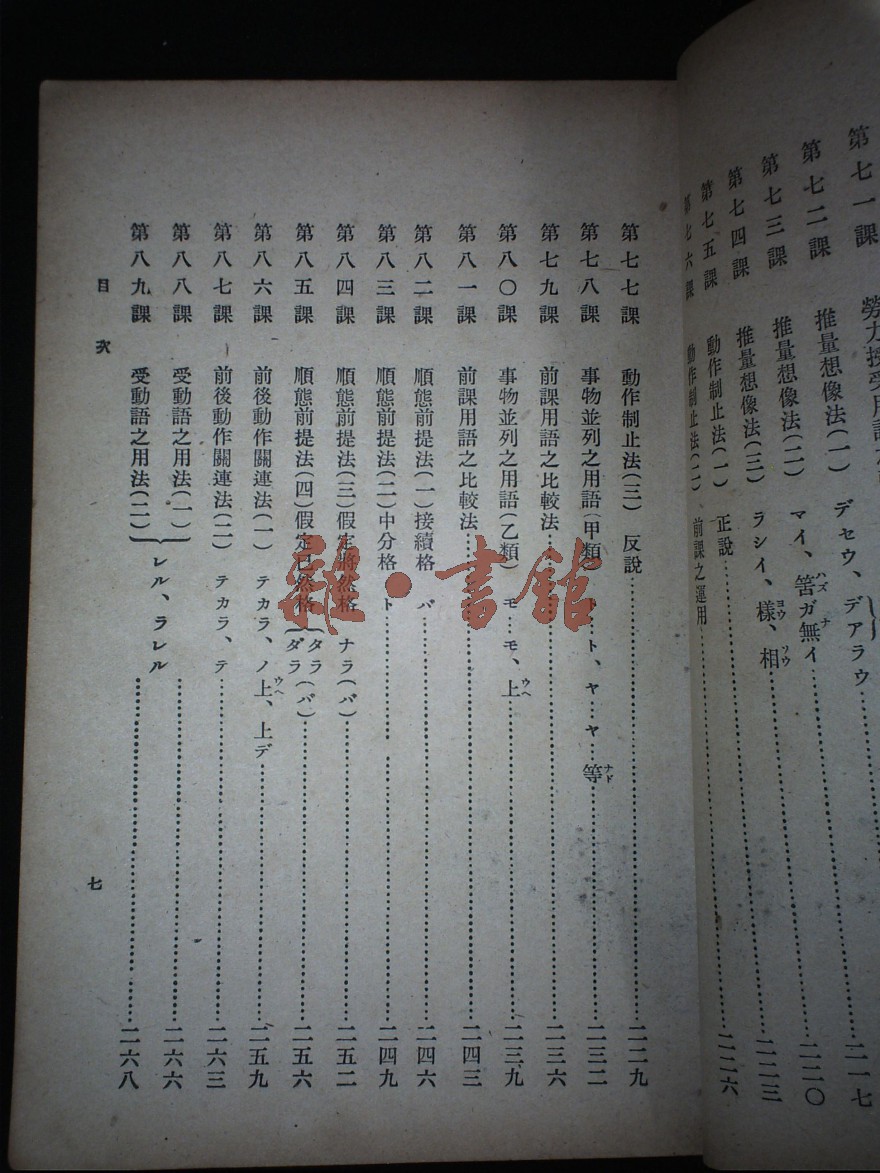 第七一課
第七二課 推量想像法(一) デセウ、デアラウ……二一七
第七三課 推量想像法(二) マイ、筈ガ無イ……二二〇
第七四課 推量想像法(三) ラシイ、樣、相……二二三
第七五課 動作制止法(一) 正說……二二六
第七六課 動作制止法(二) 前課之運用
第七七課 動作制止法(三) 反說……二二九
第七八課 事物並列之用語(甲類) ト…ト、ヤ…ヤ…等……二三二
第七九課 前課用語之比較法……二三六
第八〇課 事物並列之用語(乙類) モ…モ、上……二三九
第八一課 前課用語之比較法……二四三
第八二課 順態前提法(一)接續格 バ……二四六
第八三課 順態前提法(二)中分格 ト……二四九
第八四課 順態前提法(三)假定將然格 ナラ(バ)……二五二
第八五課 順態前提法(四)假定已然格 タラ(バ) ダラ(バ)……二五六
第八六課 前後動作關連法(一) テカラ、ノ上、上デ……二五九
第八七課 前後動作關連法(二) テカラ、テ……二六三
第八八課 受動語之用法(一)……二六六
第八九課 受動語之用法(二) レル、ラレル……二六八
目次
七
雜·書館